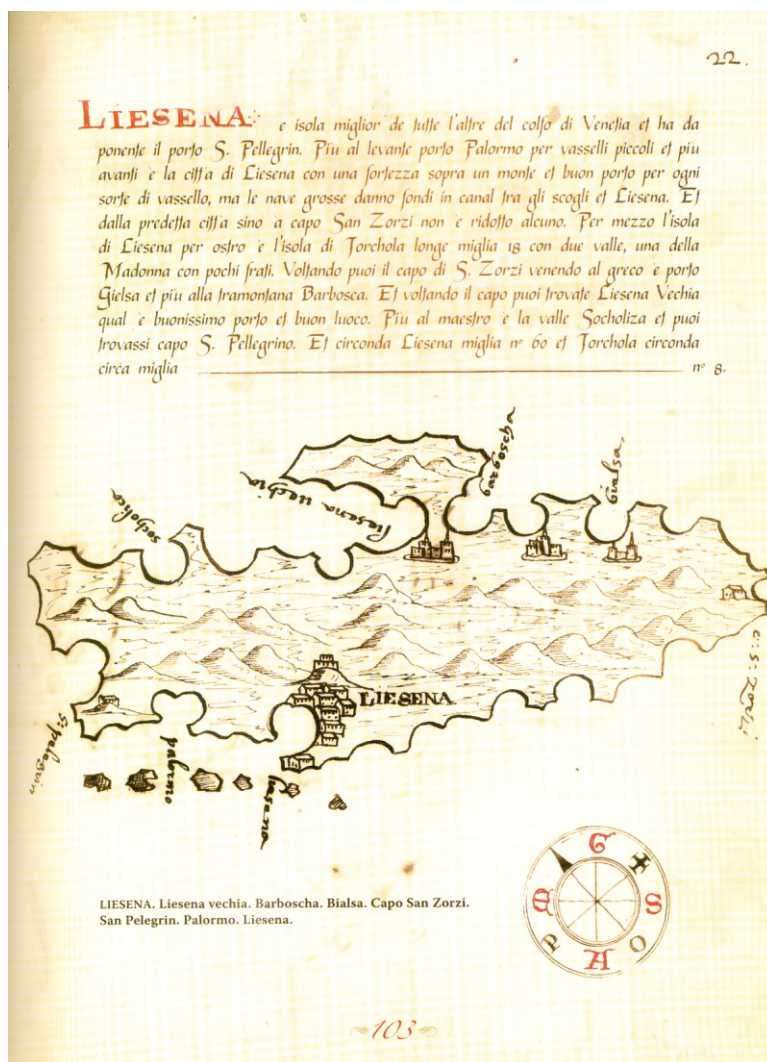 22.
LIESENA e isola miglior de tutte l'altre del colfo di Venetia et ha da
ponente il porto S. Pellegrin. Piu al levante porto Palormo per vasselli piccoli et piu
avanti e la citta di Liesena con una fortezza sopra un monte et buon porto per ogni
sorte di vassello, ma le nave grosse danno fondi in canal tra gli scogli et Liesena. Et
dalla predetta citta sino a capo San Zorzi non e ridotto alcuno. Per mezzo l'isola
di Liesena per ostro e l'isola di Torchola longe miglia 18 con due valle, una della
Madonna con pochi frati. Voltando puoi il capo di S. Zorzi venendo al greco e porto
Gielsa et piu alla tramontana Barbosca. Et voltando il capo puoi trovate Liesena Vechia
qual e buonissimo porto et buon luoco. Piu al maestro e la valle Socholiza et puoi
trovassi capo S. Pellegrino. Et circonda Liesena miglia nº 60 et Torchola circonda
circa miglia nº 8.
barboscha
Gialsa
liesena uechia
LIESENA
c: S: Zorzi
S: pelegrin
palormo
liesena
G
S
O
A
P
LIESENA. Liesena vechia. Barboscha. Bialsa. Capo San Zorzi.
San Pelegrin. Palormo. Liesena.
103